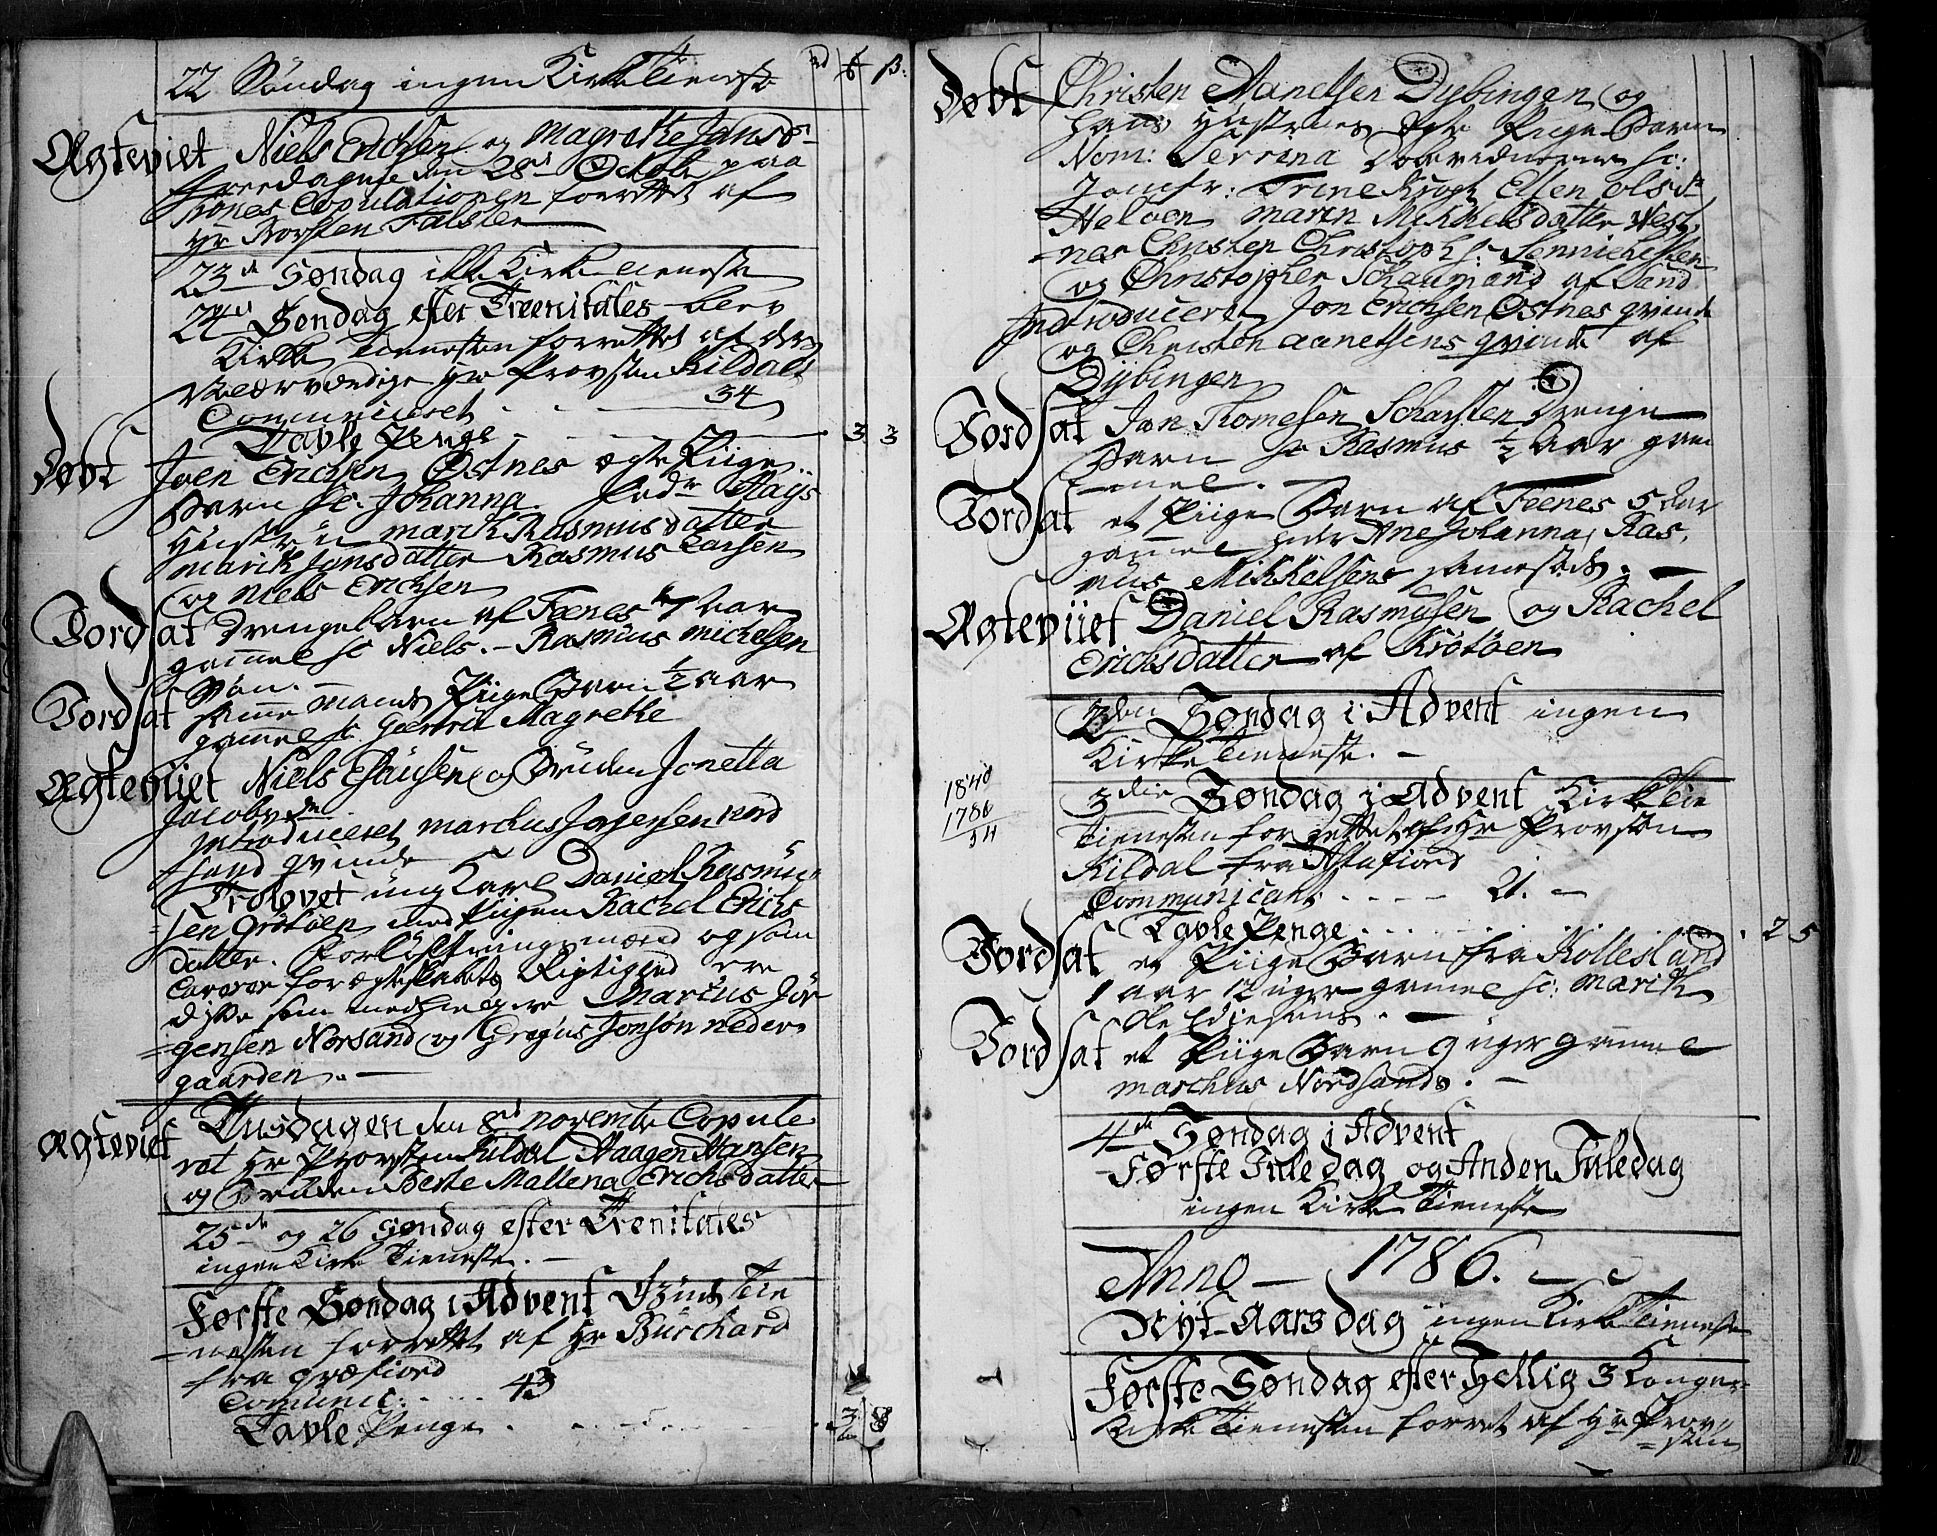 22 Søndag ingen Kirke Tieneste
rd ß
Ægteviet Niels Erichsen og Magrethe Jansd.
Freedagene den 28de Octobr paa
Copulationen forrettet af
Hr Torsten Falster
23de Søndag ikke Kirke Tieneste
24de Søndag efter Treenitates blev
Kirke Tienesten forrettet af den
Velærværdige Hr Provsten Kildals
Communiceret 34
Tavle Penge 3 3
Døbt Joen Erichsen Østnes ægte Piige
Barn sc. Johanna. Fadr Aags
Hustrue Marit Rasmusdatter
Marith Jonsdatter Rasmus Larsen
og Niels Erichsen
Jordsat Drengebarn af Feenes 7 Aar
gammel sc Niels. Rasmus Michelsen
Søn.
Jordsat samme Mands Piige Barn ½ aar
gammel sc Giertru Magrethe
Ægteviiet Niels Clausen og Bruden Jonetta
Jacobsdr
Introduceret Marchus Jørgensen Nord
sand qvinde
Trolovet ung Karl Daniel Rasmu
sen Grøtøen med Piigen Rachel Erichs
datter. Forløftningsmænd og som
Caverer for ægteskabets Rigtighed ere
disse som medfølgere Marcus Jør
gensen Norsand og Gregus Jonsøn neder
gaarden.
Ægteviet Tiisdagen den 8de novembr Copule
ret Hr Provsten Kildal Haagen Hansen
og Bruden Berte Mallena Erichsdatter
25de og 26 Søndag efter Trenitates
ingen Kirke Tieneste.
Første Søndag i Advent Guds Tie
nesten forrettet af Hr Burchard
fra Græfiord
Comunic: 43
Tavle Penge 3 8
Døbt Christen Aanetsen Dybingen og
hans Hustrues Piige Barn
Nom: Serrina Døbevidnerne sc:
Jomfr: Trine Krogh Ellen Olsdr
Heløen Maren Mikkelsdatter Vest
nes Christen Christoph: Sennichesen
og Christopher Schaumand af Sand
Introduceret Jon Erichsen Østnes qvinde
og Christen aanetsens qvinde af
Dybingen
Jordsat Jan Thomesen Scharsten Drenge
Barn sc Rasmus ½ Aar gam
mel.
Jordsat et Piige Barn af Feenes 5 Aar
gammel heder Ane Johanna, Ras
mus Mikkelsens sammesteds.
Ægteviiet Daniel Rasmusen og Rachel
Erichsdatter af Krøtøen
2den Søndag i Advent ingen
Kirke Tieneste.
1840
1786
54
3die Søndag i Advent Kirke Tie
Tienesten forrettet af Hr Provsten
Kildal fra Astafiord
Communicant 21.
Tavle Penge 2 5
Jordsat et Piige Barn fra Kollesland
1 aar 12 uger gammel sc: Marith
Ole Ediesens.
Jordsat et Piige Barn 9 uger gammel
Marchus Nordsands.
4de Søndag i Advent
Første Juledag og Anden Juledag
ingen Kirke Tieneste
Anno 1786.
Nyt-Aarsdag ingen Kirke Tieneste
Første Søndag efter Hellig 3 Konger
Kirke Tienesten forret af Hr Prov
sten